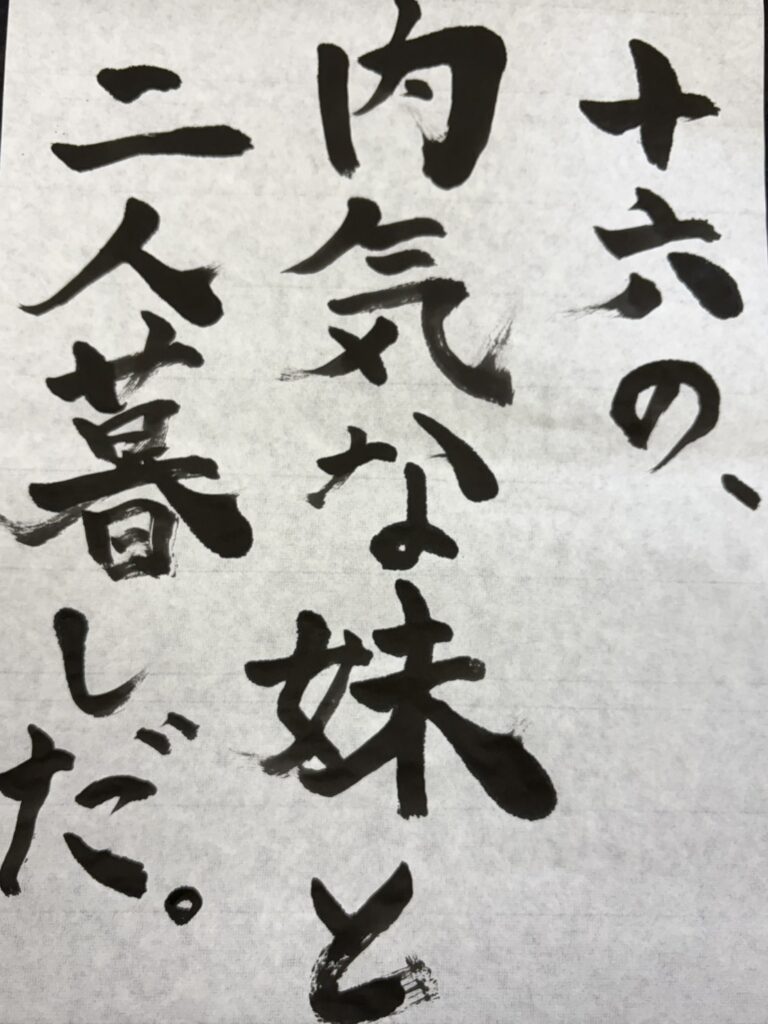 十六の、
内気な妹と
二人暮しだ。